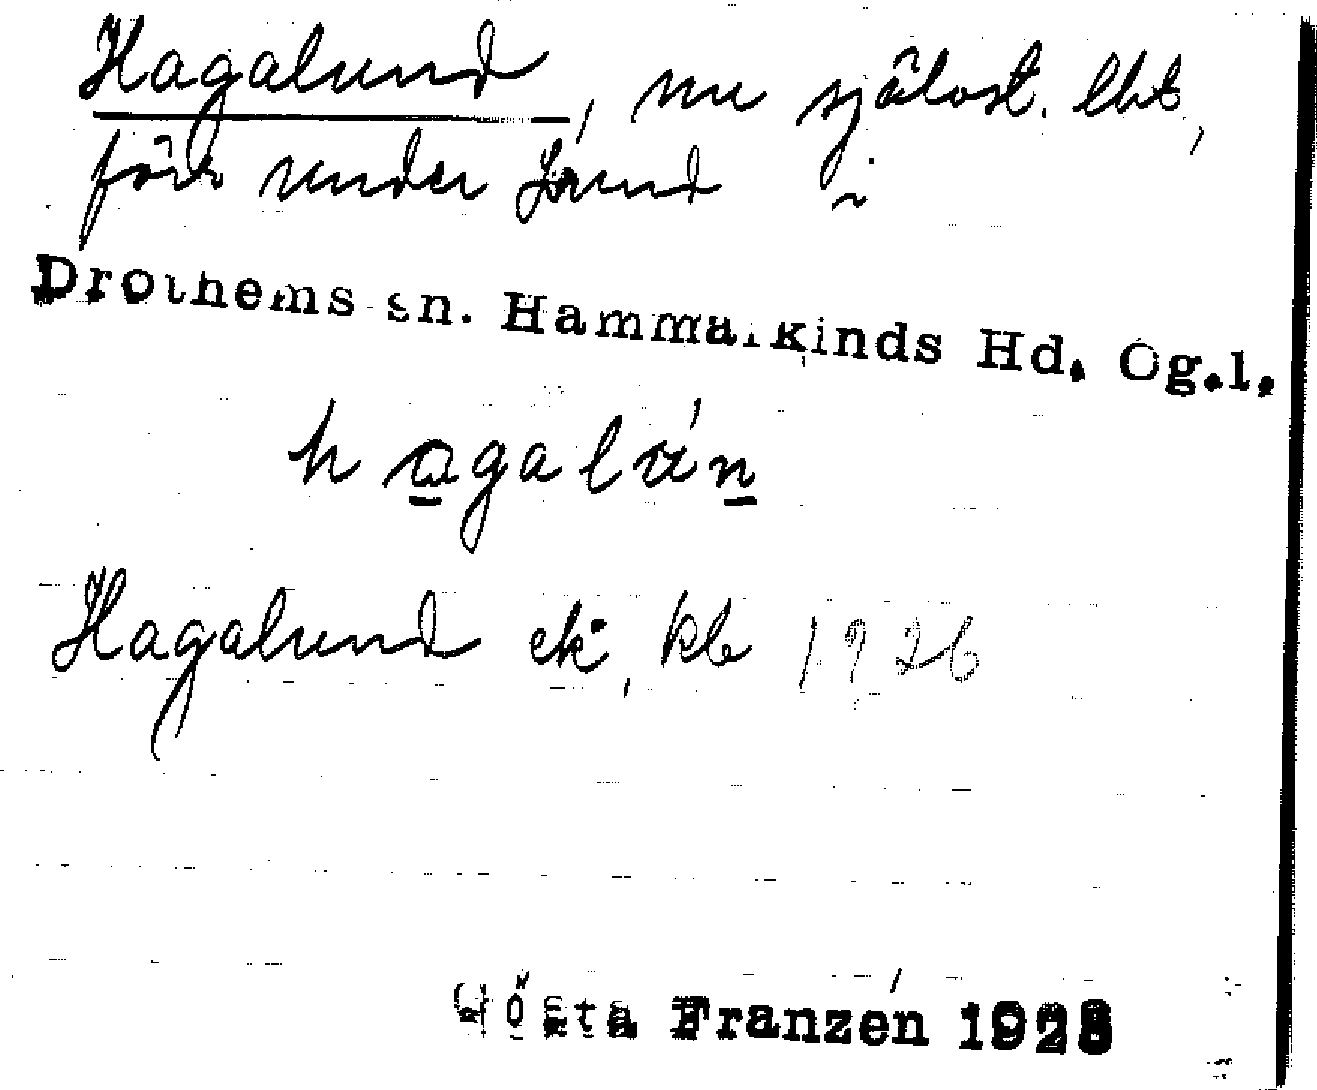 Hagalund, nu självst. lht,
förr under Lund i
Drothems sn. Hammarkinds Hd. Ög.l.
hagalún
Hagalund ek, kb 1926
Gösta Franzén 1928